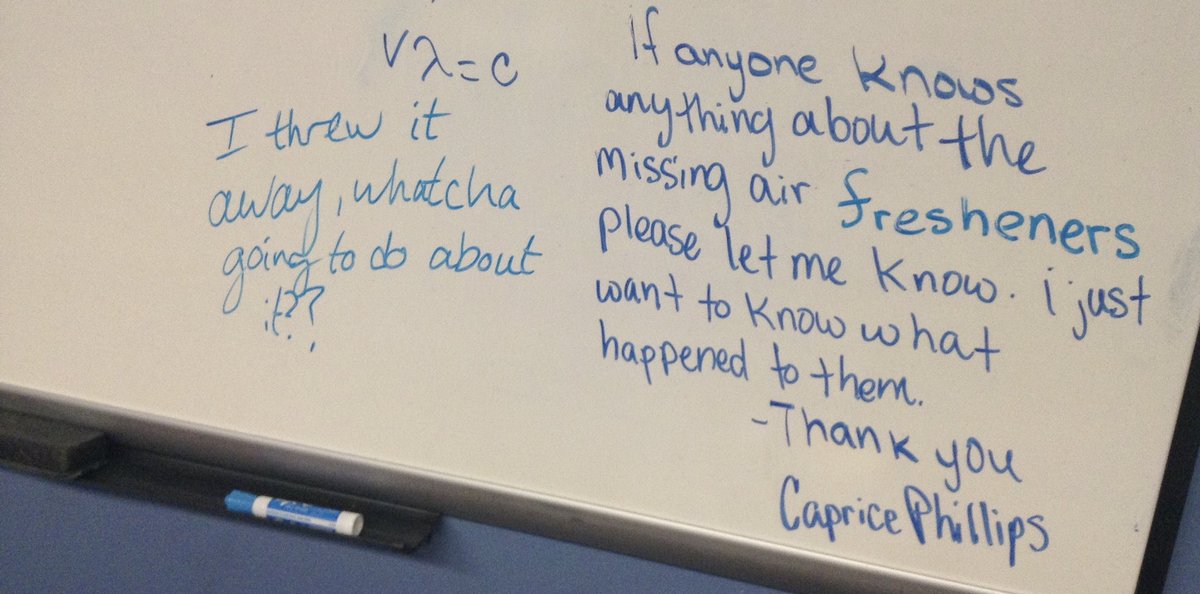 νλ=c
I threw it
away, whatcha
going to do about
it??
If anyone knows
anything about the
missing air fresheners
please let me know. i just
want to know what
happened to them.
-Thank you
Caprice Phillips